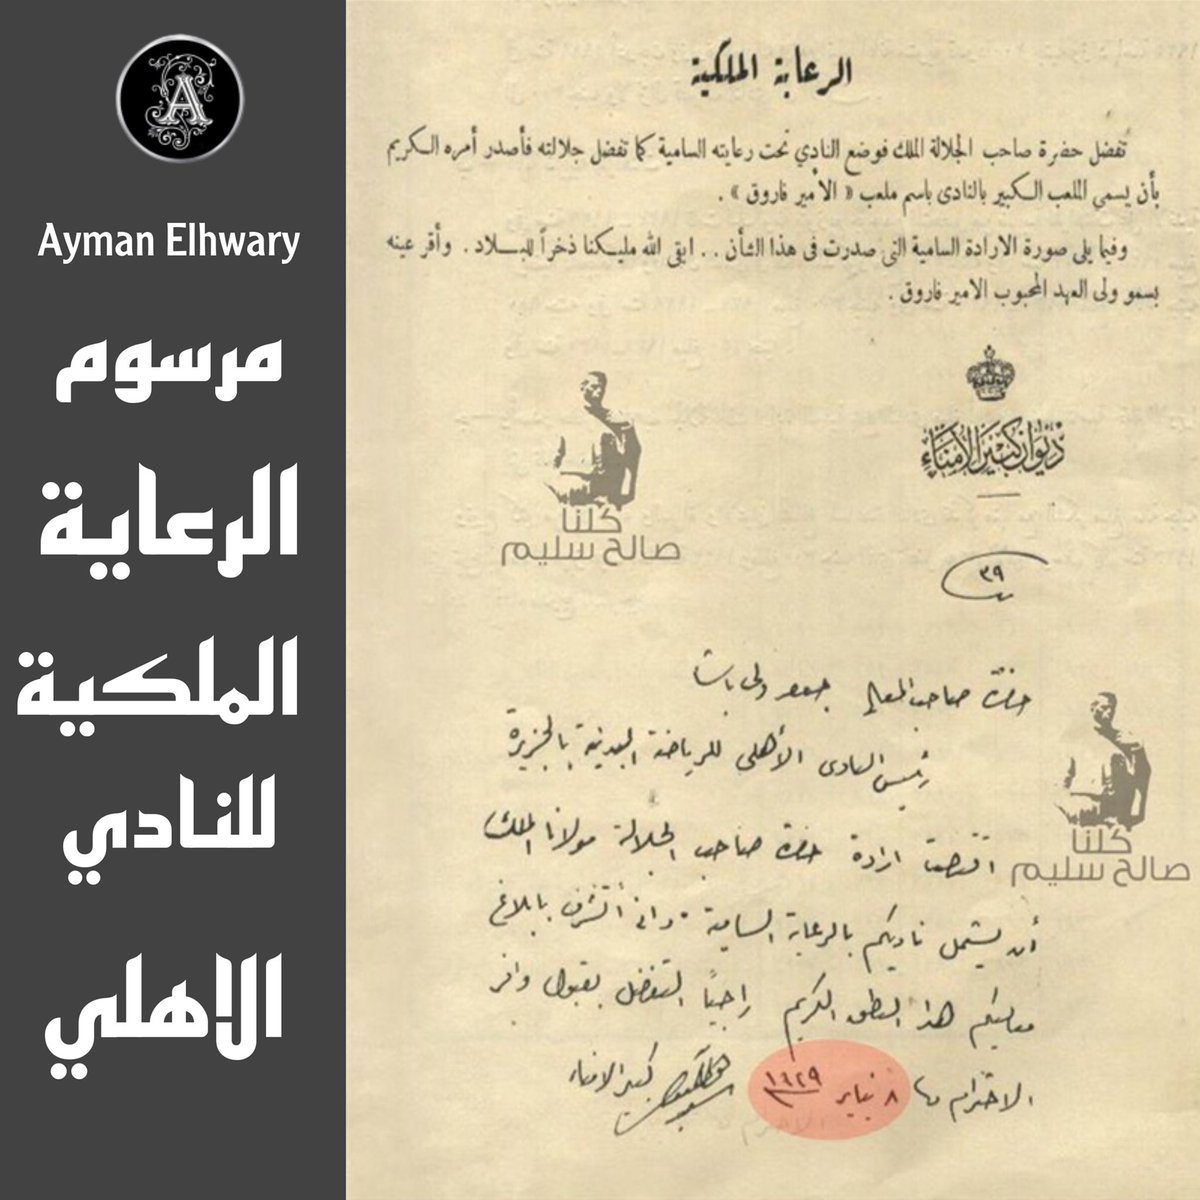 A
Ayman Elhwary
مرسوم
الرعاية
الملكية
للنادي
الاهلي
الرعاية الملكية
تفضل حضرة صاحب الجلالة الملك فوضع النادي تحت رعايته السامية كما تفضل جلالته فأصدر أمره الكريم
بأن يسمى الملعب الكبير بالنادى باسم ملعب « الأمير فاروق » .
وفيما يلى صورة الارادة السامية التى صدرت فى هذا الشأن . . ابقى الله مليكنا ذخراً للبلاد . وأقر عينه
بسمو ولى العهد المحبوب الامير فاروق .
ديوان كبير الأمناء
٣٩
كلنا
صالح سليم
حضرة صاحب المعالي جعفر ولى باشا
رئيس النادى الأهلى للرياضة البدنية بالجزيرة
اقتضت ارادة حضرة صاحب الجلالة مولانا الملك
أن يشمل ناديكم بالرعاية السامية وانى أتشرف بابلاغ
معاليكم هذا النطق الكريم راجيًا التفضل بقبول وافر
الاحترام ٨ يناير ١٩٢٩
كبير الامناء
كلنا
صالح سليم